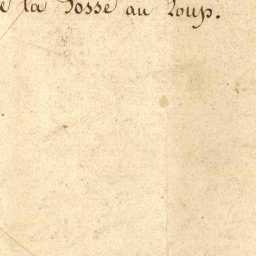 e la Fosse au Loup.